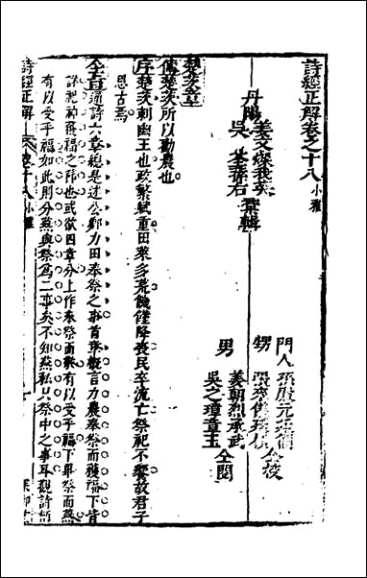 詩經正解卷之十八 小雅
丹陽 姜文燦我英
吳 荃蓀右 彙輯
門人
甥 仝校
男 姜朝烈承武
吳之璋章玉 仝閱
楚茨章
傳楚茨所以勸農也
序楚茨刺幽王也政繁賦重田萊多荒饑饉降喪民卒流亡祭祀不饗故君子
思古焉
全旨通詩六章總是述公卿力田奉祭之事首章概言力農奉祭而獲福下皆
詳祀神獲福之
有以受乎福如此則分燕與祭為二事矣不知燕私只祭中之事耳觀詩
詩經正解 卷十八 小雅